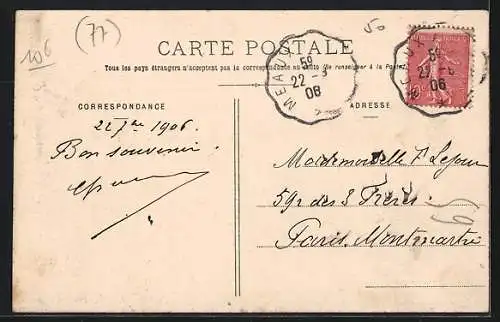 106
(77)
50
CARTE POSTALE
Tous les pays étrangers n'acceptent pas la correspondance au recto (Se renseigner à la Poste)
MEAUX
59
22 - 8
06
59
22 - 8
06
CORRESPONDANCE
ADRESSE
1906.
Bon souvenir
Mademoiselle Lejour
59 des 3 Frères.
Paris. Montmartre
59